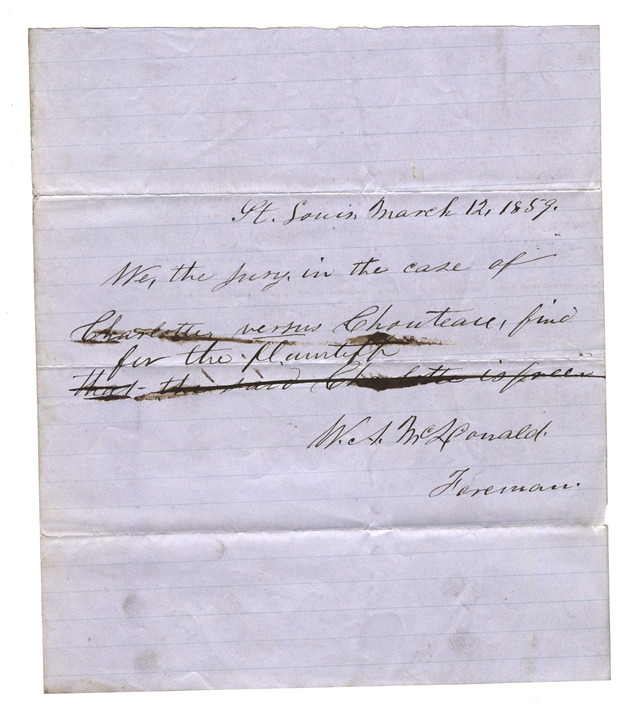 St. Louis, March 12, 1859.
We, the Jury, in the case of
Charlotte, versus Chouteau, find
for the Plaintiff
that the said Charlotte is free.
W. A. McDonald.
Foreman.